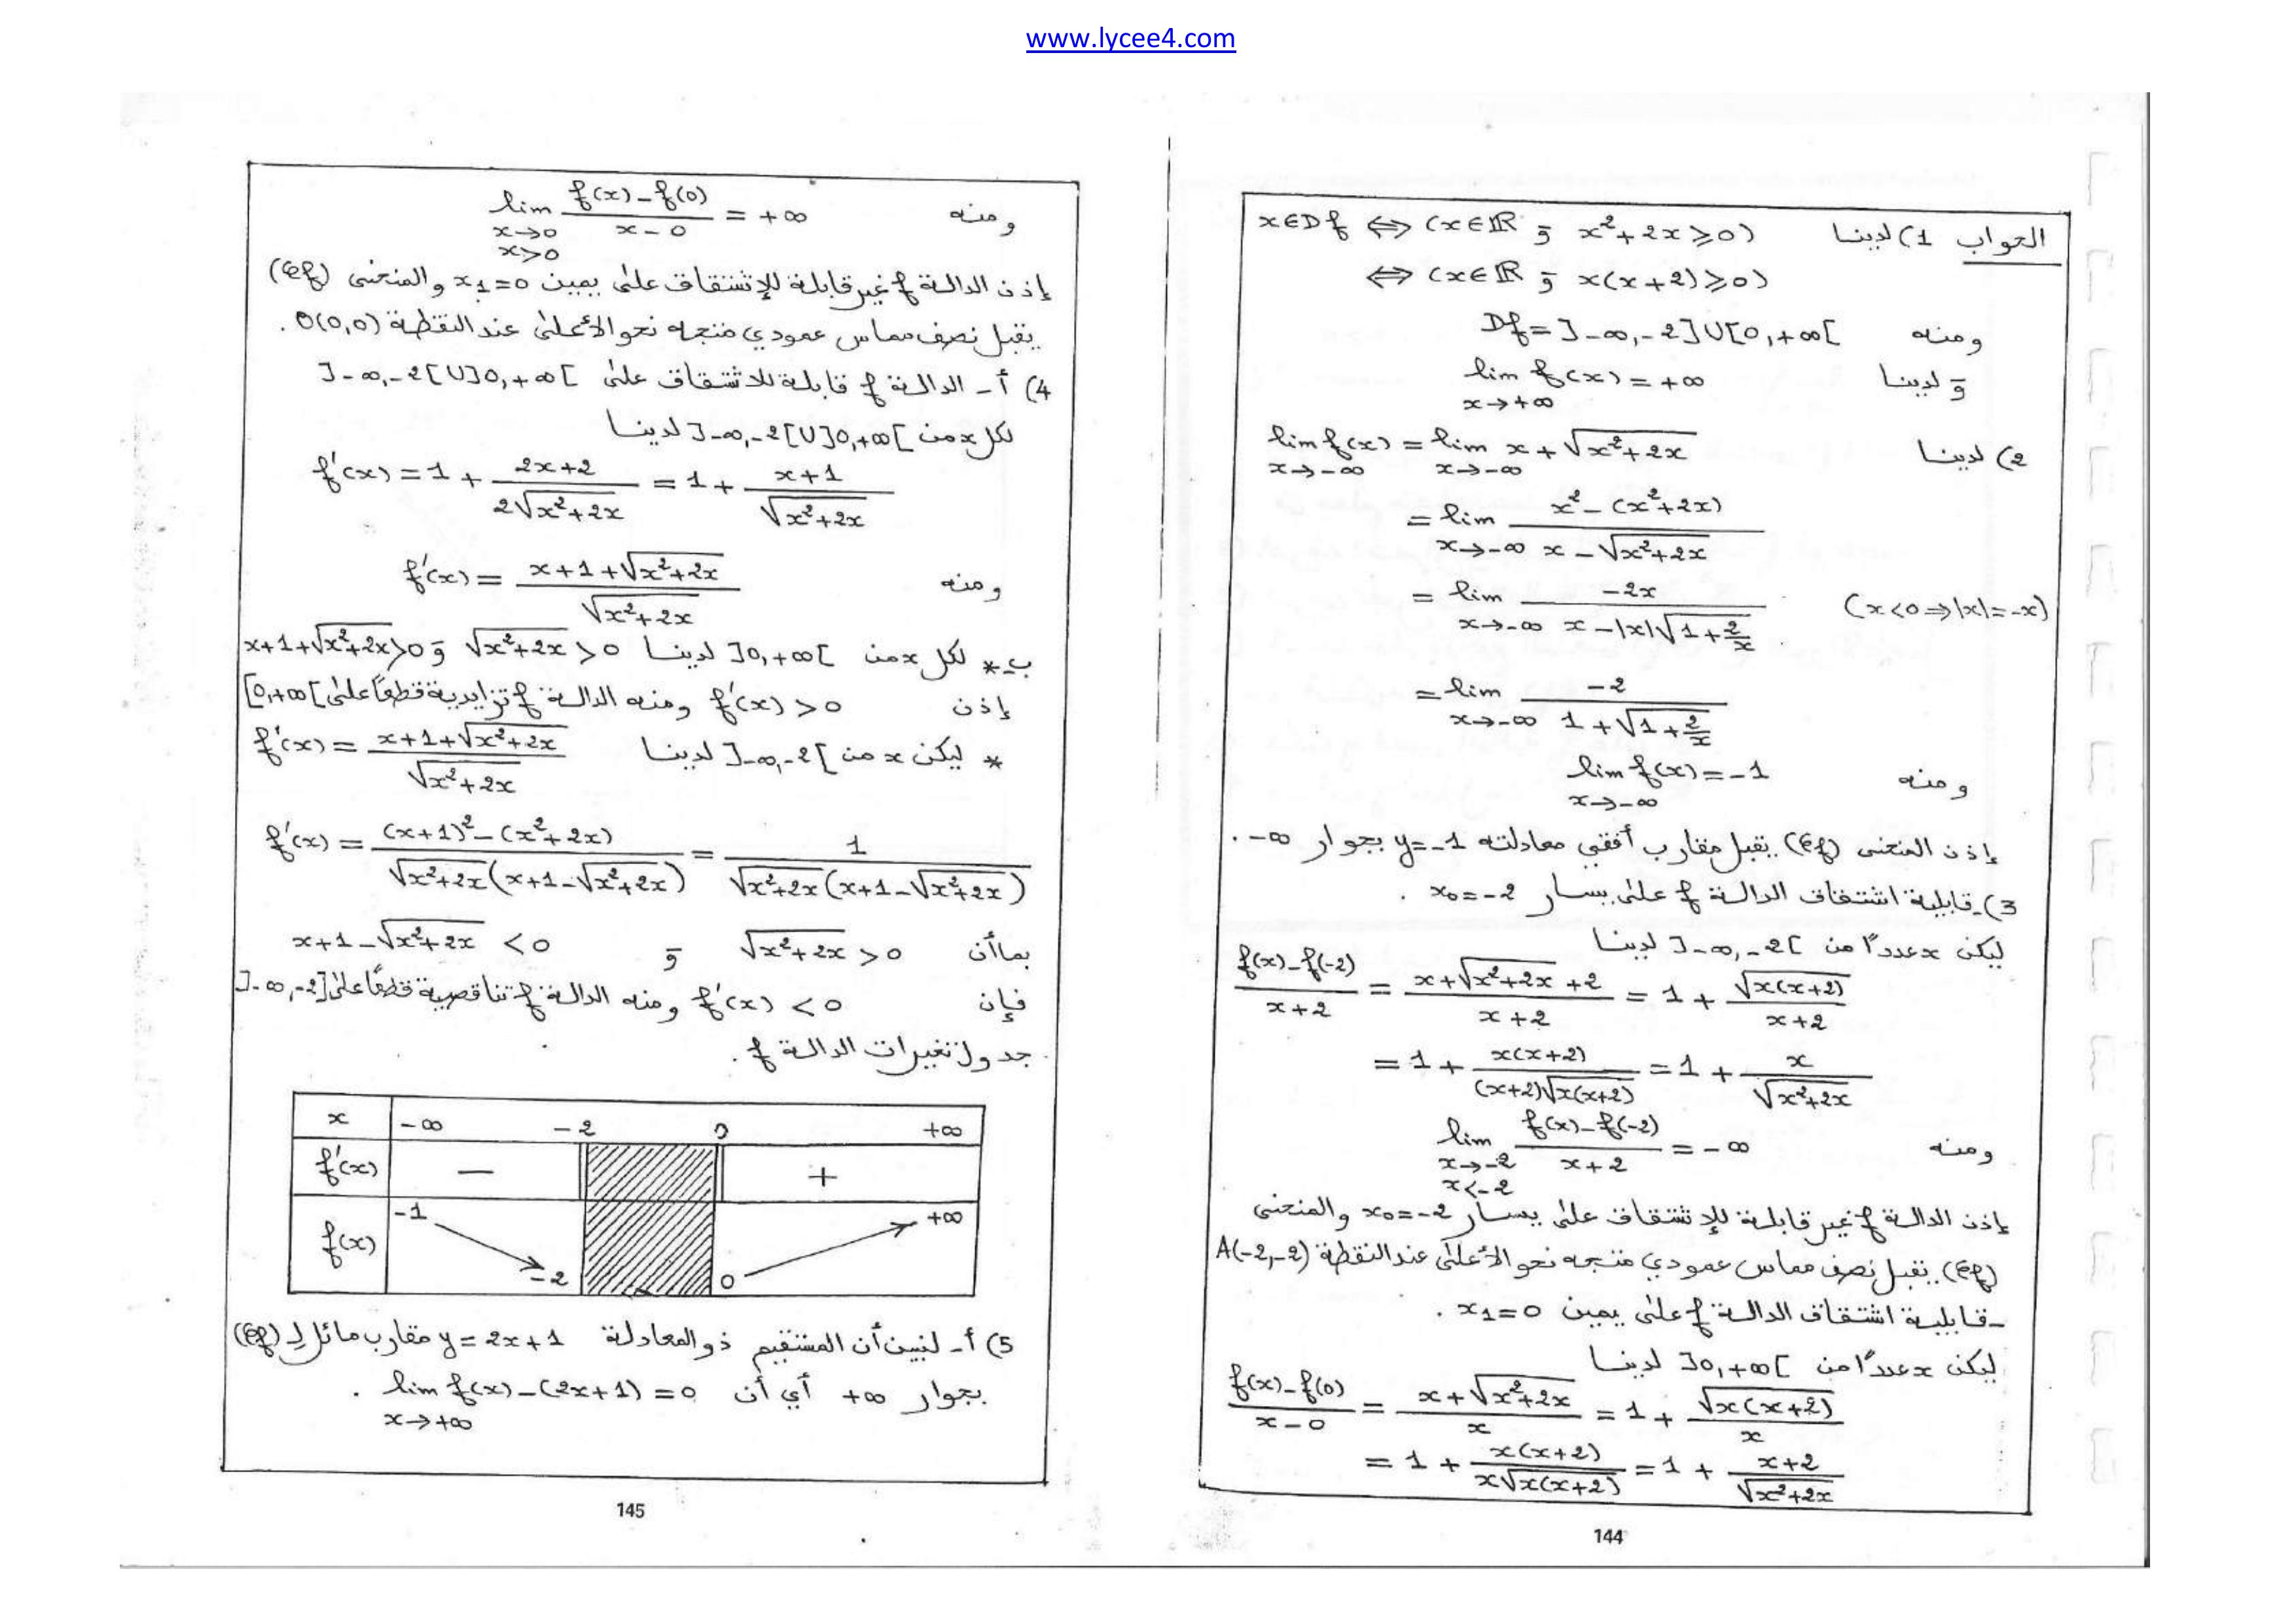 www.lycee4.com
الجواب 1) لدينا x∈Df ⇔ (x∈ℝ و x²+2x⩾0)
⇔ (x∈ℝ و x(x+2)⩾0)
ومنه Df=]-∞,-2]∪[0,+∞[
و لدينا lim f(x) = +∞
x→+∞
2) لدينا lim f(x) = lim x+√(x²+2x)
x→-∞ x→-∞
= lim (x²-(x²+2x))/(x-√(x²+2x))
x→-∞
= lim (-2x)/(x-|x|√(1+2/x)) (x<0⇒|x|=-x)
x→-∞
= lim (-2)/(1+√(1+2/x))
x→-∞
ومنه lim f(x)=-1
x→-∞
إذن المنحنى (Cf) يقبل مقارب أفقي معادلته y=-1 بجوار -∞.
3)- قابلية اشتقاق الدالة f على يسار x₀=-2 .
ليكن x عددًا من ]-∞,-2[ لدينا
(f(x)-f(-2))/(x+2) = (x+√(x²+2x)+2)/(x+2) = 1+√(x(x+2))/(x+2)
= 1+(x(x+2))/((x+2)√(x(x+2))) = 1+x/√(x²+2x)
ومنه lim (f(x)-f(-2))/(x+2) = -∞
x→-2
x<-2
إذن الدالة f غير قابلة للإشتقاق على يسار x₀=-2 والمنحنى
(Cf) يقبل نصف مماس عمودي متجه نحو الأعلى عند النقطة A(-2,-2)
- قابلية اشتقاق الدالة f على يمين x₁=0 .
ليكن x عددًا من ]0,+∞[ لدينا
(f(x)-f(0))/(x-0) = (x+√(x²+2x))/x = 1+√(x(x+2))/x
= 1+(x(x+2))/(x√(x(x+2))) = 1+(x+2)/√(x²+2x)
144
ومنه lim (f(x)-f(0))/(x-0) = +∞
x→0
x>0
إذن الدالة f غير قابلة للإشتقاق على يمين x₁=0 والمنحنى (Cf)
يقبل نصف مماس عمودي متجه نحو الأعلى عند النقطة O(0,0).
4) أ- الدالة f قابلة للاشتقاق على ]-∞,-2[∪]0,+∞[
لكل x من ]-∞,-2[∪]0,+∞[ لدينا
f'(x) = 1+(2x+2)/(2√(x²+2x)) = 1+(x+1)/√(x²+2x)
ومنه f'(x) = (x+1+√(x²+2x))/√(x²+2x)
ب-* لكل x من ]0,+∞[ لدينا √(x²+2x)>0 و x+1+√(x²+2x)>0
إذن f'(x)>0 ومنه الدالة f تزايدية قطعًا على [0,+∞[
* ليكن x من ]-∞,-2[ لدينا f'(x) = (x+1+√(x²+2x))/√(x²+2x)
f'(x) = ((x+1)²-(x²+2x))/(√(x²+2x)(x+1-√(x²+2x))) = 1/(√(x²+2x)(x+1-√(x²+2x)))
بما أن √(x²+2x)>0 و x+1-√(x²+2x)<0
فإن f'(x)<0 ومنه الدالة f تناقصية قطعًا على ]-∞,-2]
جدول تغيرات الدالة f.
x -∞ -2 0 +∞
f'(x) − +
f(x) -1 -2 0 +∞
5) أ- لنبين أن المستقيم ذو المعادلة y=2x+1 مقارب مائل لِ (Cf)
بجوار +∞ أي أن lim f(x)-(2x+1)=0 .
x→+∞
145